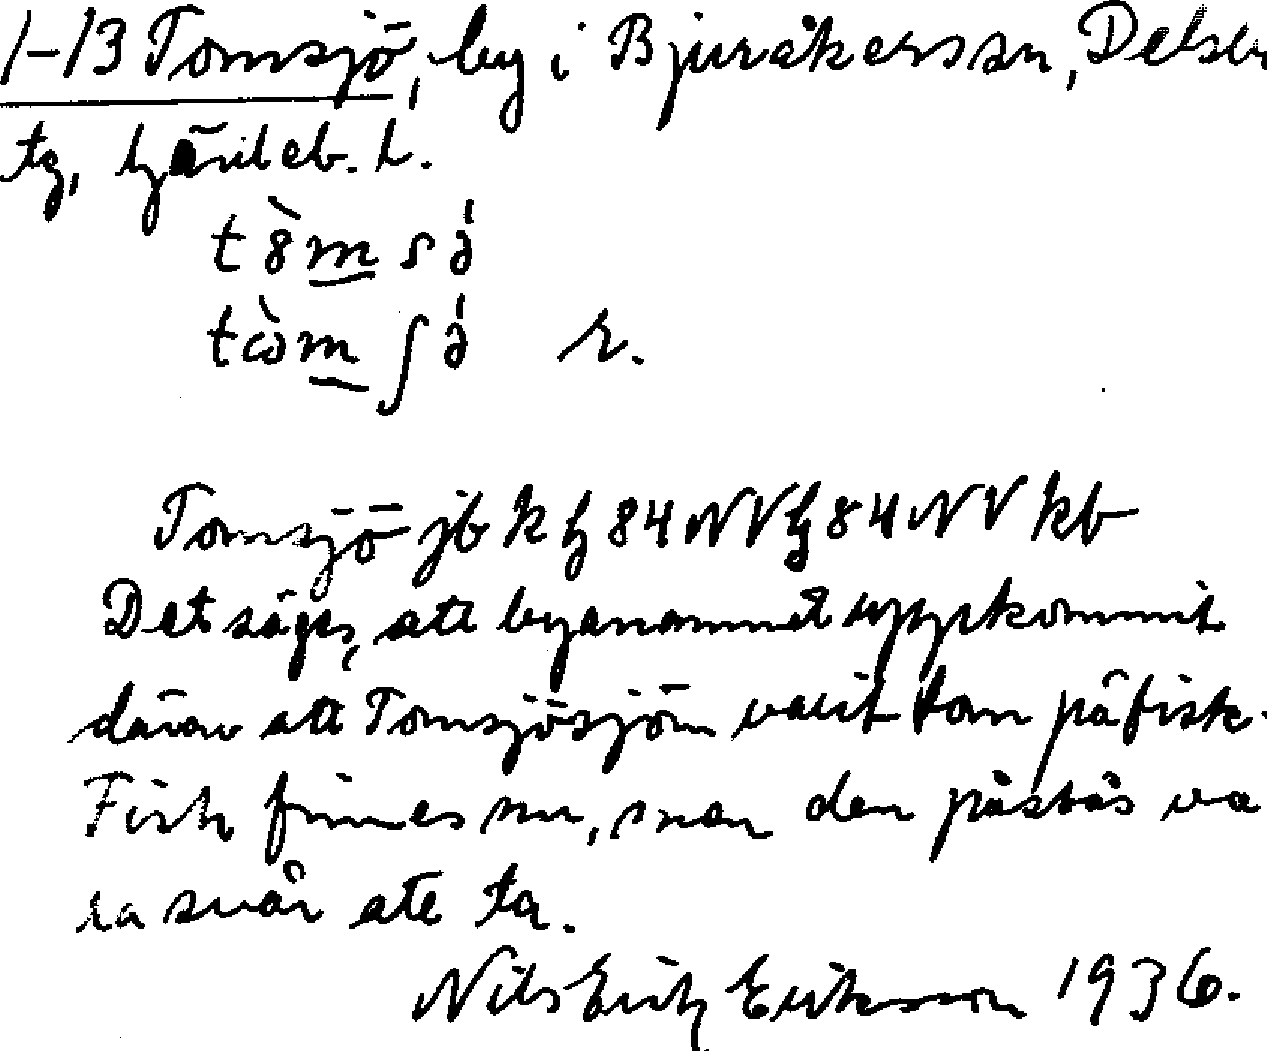 1-13 Tomsjö, by i Bjuråkers sn, Delsbo
tg, Gävleb. l.
Tomsjö jb k G 84 NV G 84 NV kb
Det säges, att byanamnet uppkommit
därav att Tomsjösjön varit tom på fisk.
Fisk finnes nu, men den påstås va
ra svår att ta.
Nils Erik Eriksson 1936.